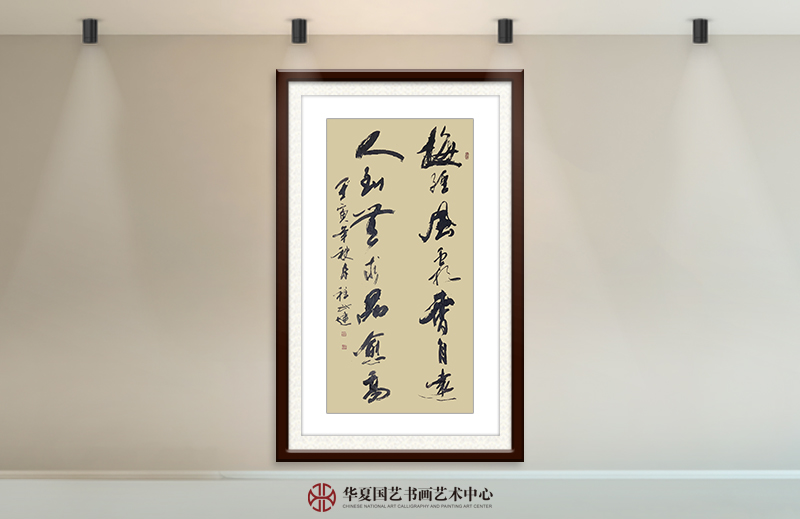 梅经风霜香自远
人到无求品愈高
寅年秋月
华夏国艺书画艺术中心
CHINESE NATIONAL ART CALLIGRAPHY AND PAINTING ART CENTER